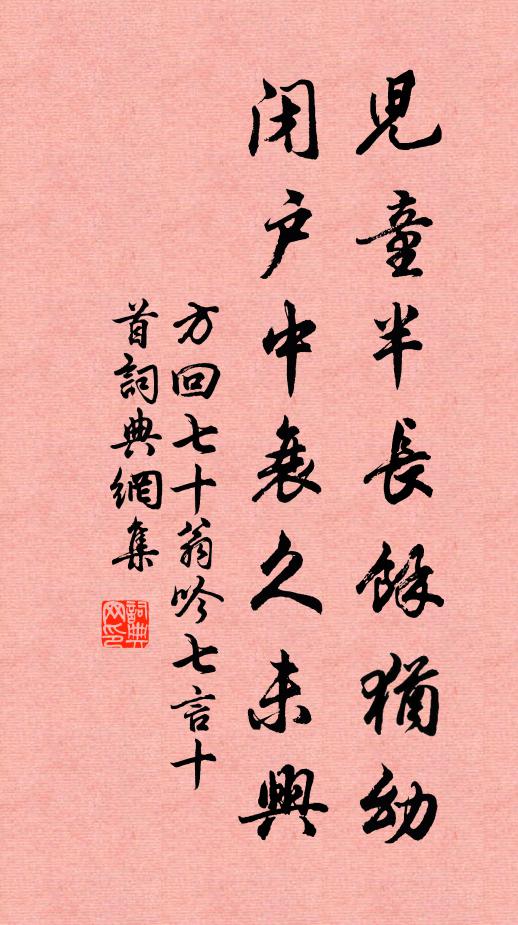 兒童半長餘猶幼
閉戶中衰久未興
方回七十翁吟七言十
首詞典網集
詞典
网印